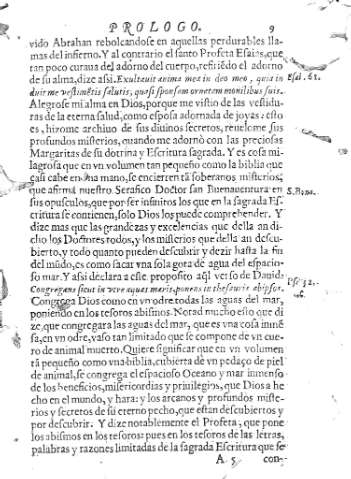 PROLOGO. 9
vido Abrahan rebolcandose en aquellas perdurables lla-
mas del infierno. Y al contrario el santo Profeta Esaias, que
tan poco curaua del adorno del cuerpo, refiriẽdo el adorno
de su alma, dize assi. Exultauit anima mea in deo meo, quia in
Esai. 61.
duit me vestimẽtis salutis, quasi sponsam ornatam monilibus suis.
Alegrose mi alma en Dios, porque me vistio de las vestidu-
ras de la eterna salud, como esposa adornada de joyas: esto
es, hizome archiuo de sus diuinos secretos, reuelome sus
profundos misterios, quando me adornò con las preciosas
Margaritas de su dotrina y Escritura sagrada. Y es cosa mi-
lagrosa que en vn volumen tan pequeño como la biblia que
casi cabe en vna mano, se encierren tã soberanos misterios;
que afirma nuestro Serafico Doctor san Buenauentura en
S. Buena.
sus opusculos, que por ser infinitos los que en la sagrada Es-
critura se contienen, solo Dios los puede comprehender. Y
dize mas que las grandezas y excelencias que della an di-
cho los Doctores todos, y los misterios que della an descu-
bierto, y todo quanto pueden descubrir y dezir hasta la fin
del mũdo, es como sacar vna sola gota de agua del espacio-
so mar. Y assi declara a este proposito aq̃l verso de Dauid:
Psal. 32.
Congregans sicut in vtre aquas maris, ponens in thesauris abissos.
Congrega Dios como en vn odre todas las aguas del mar,
poniendo en los tesoros abismos. Notad mucho esto que di
ze, que congregara las aguas del mar, que es vna cosa inmẽ
sa, en vn odre, vaso tan limitado que se compone de vn cue-
ro de animal muerto. Quiere significar que en vn volumen
tã pequeño como vna biblia, cubierta de vn pedaço de piel
de animal, se congrega el espacioso Oceano y mar inmenso
de los beneficios, misericordias y priuilegios, que Dios a he
cho en el mundo, y hara: y los arcanos y profundos miste-
rios y secretos de su eterno pecho, que estan descubiertos y
por descubrir. Y dize notablemente el Profeta, que pone
los abismos en los tesoros: pues en los tesoros de las letras,
palabras y razones limitadas de la sagrada Escritura que se
A 5 con-